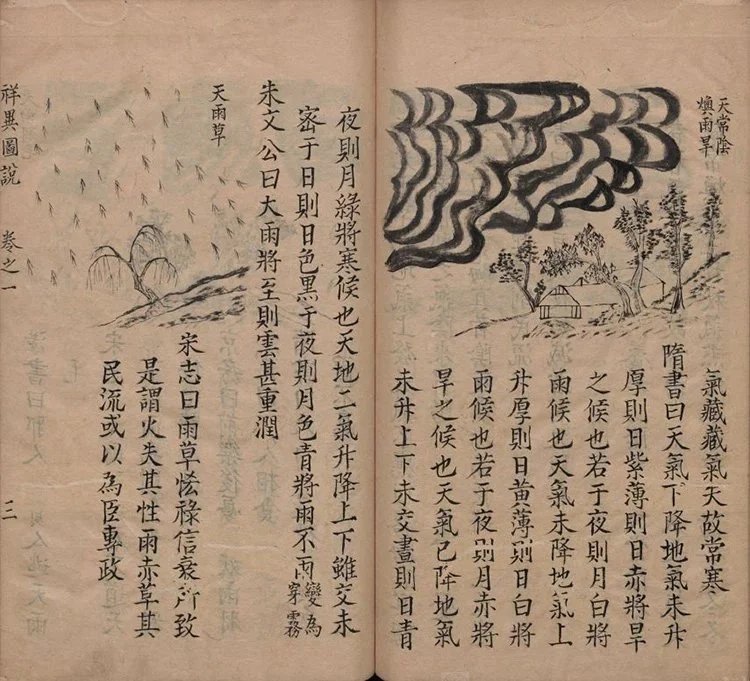 天常陰
燠雨旱
氣藏藏氣天故常寒
隋書曰天氣下降地氣未升
厚則日紫薄則日赤將旱
之候也若于夜則月白將
雨候也天氣未降地氣上
升厚則日黃薄則日白將
雨候也若于夜則月赤將
旱之候也天氣已降地氣
未升上下未交晝則日青
夜則月綠將寒候也天地二氣升降上下雖交未
密于日則日色黑于夜則月色青將雨不雨變為穿霧
朱文公曰大雨將至則雲甚重潤
天雨草
宋志曰雨草恡祿信衰所致
是謂火失其性雨赤草其
民流或以為臣專政
祥異圖說 卷之一 三